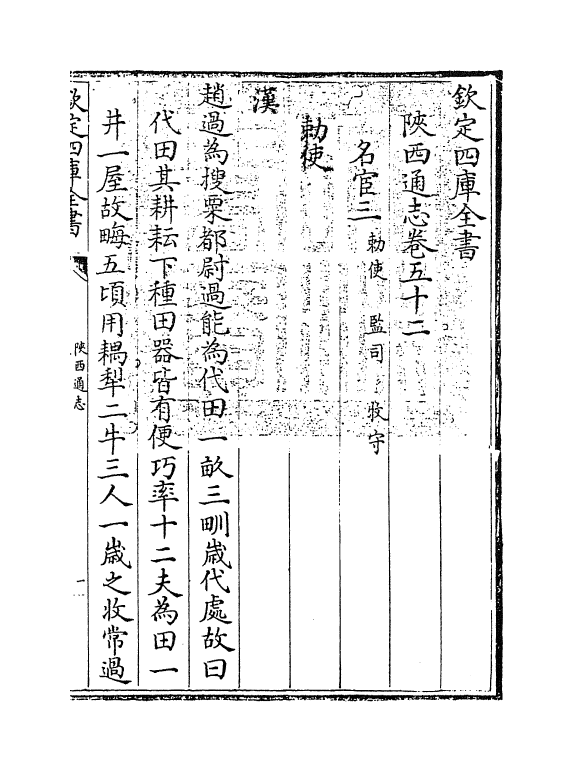 欽定四庫全書
陝西通志卷五十二
名宦三 勅使 監司 牧守
勅使
漢
趙過為搜粟都尉過能為代田一畝三甽歲代處故曰
代田其耕耘下種田器皆有便巧率十二夫為田一
井一屋故畮五頃用耦犂二牛三人一歲之收常過
欽定四庫全書
陝西通志
一